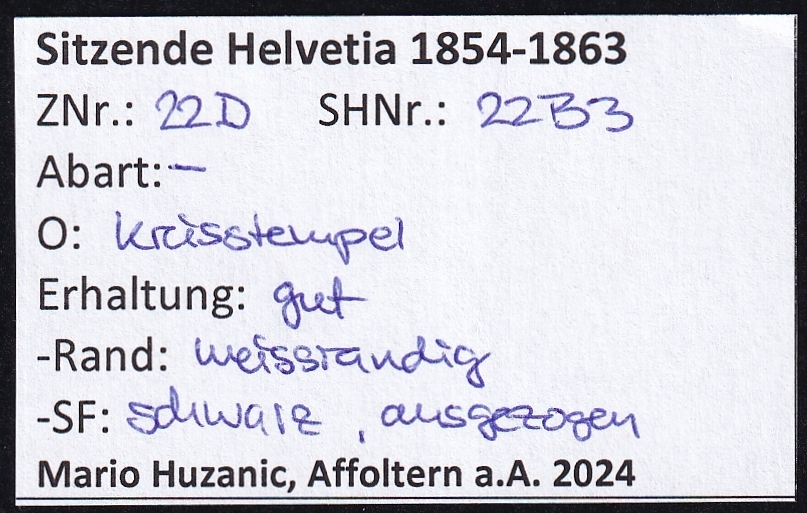 Sitzende Helvetia 1854-1863
ZNr.: 22D SHNr.: 22B3
Abart: –
O: Kreisstempel
Erhaltung: gut
-Rand: weissrandig
-SF: schwarz, ausgezogen
Mario Huzanic, Affoltern a.A. 2024